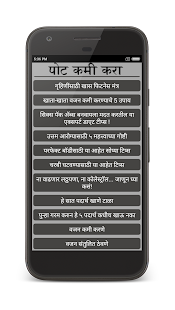 5:06 PM
पोट कमी करा
गृहिणींसाठी खास फिटनेस मंत्र
खाता-खाता वजन कमी करण्याचे 5 उपाय
सिक्स पॅक अ‍ॅब्स बनवायला मदत करतील या
एक्सपर्ट डाएट टीप्स !
उत्तम आरोग्यासाठी ५ महत्वाच्या गोष्टी
परफेक्ट बॉडीसाठी या आहेत सोप्या टिप्स
चरबी घटवण्यासाठी या आहेत टिप्स
ना वाढणार लठ्ठपणा, ना कोलेस्ट्रॉल... जाणून घ्या
कसं!
हे सात पदार्थ खाणे टाळा
पुन्हा गरम करून हे ५ पदार्थ कधीच खाऊ नका
वजन कमी करणे
वजन संतुलित ठेवणे